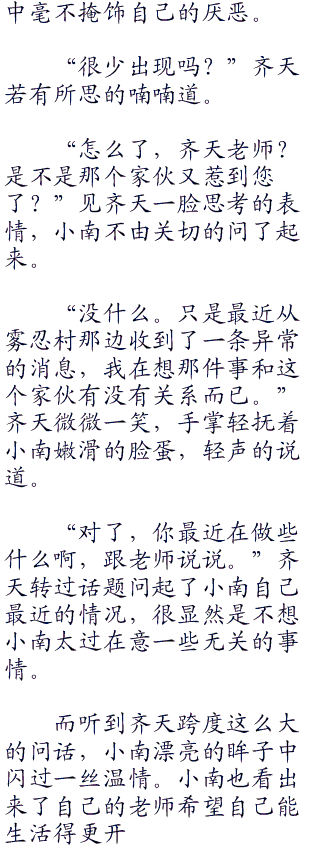 中毫不掩饰自己的厌恶。
“很少出现吗？”齐天
若有所思的喃喃道。
“怎么了，齐天老师？
是不是那个家伙又惹到您
了？”见齐天一脸思考的表
情，小南不由关切的问了起
来。
“没什么。只是最近从
雾忍村那边收到了一条异常
的消息，我在想那件事和这
个家伙有没有关系而已。”
齐天微微一笑，手掌轻抚着
小南嫩滑的脸蛋，轻声的说
道。
“对了，你最近在做些
什么啊，跟老师说说。”齐
天转过话题问起了小南自己
最近的情况，很显然是不想
小南太过在意一些无关的事
情。
而听到齐天跨度这么大
的问话，小南漂亮的眸子中
闪过一丝温情。小南也看出
来了自己的老师希望自己能
生活得更开